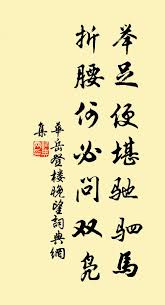 举足便堪驰驷馬
折腰何必问双凫
華岳登楼晚望詞典網
集